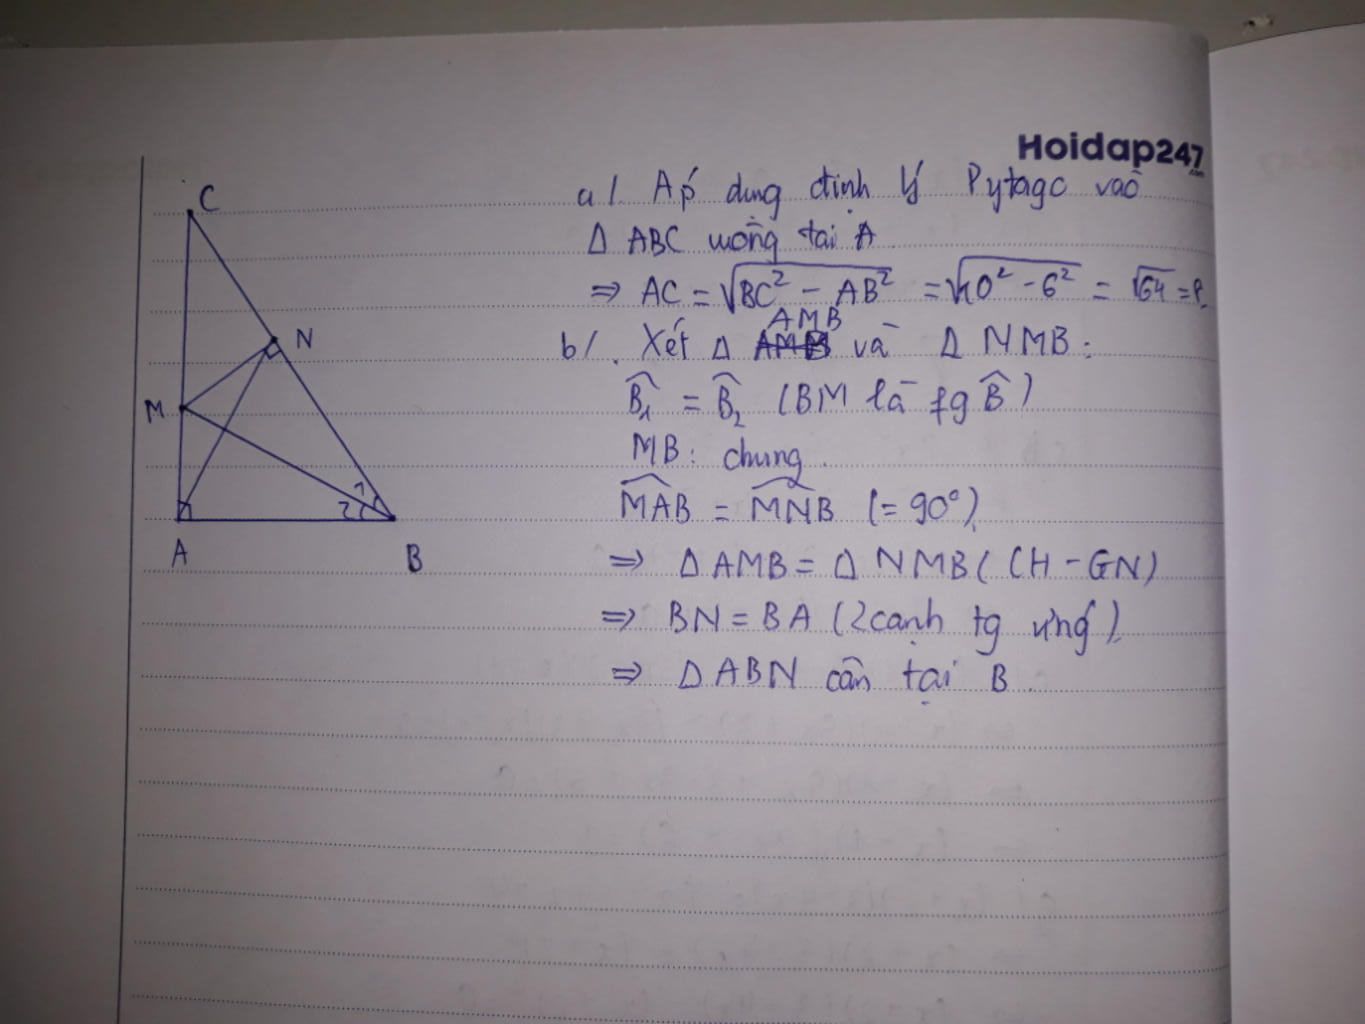 Hoidap247
.com
a/. Áp dụng định lý Pytago vào
Δ ABC vuông tại A
⇒ AC = √BC² - AB² = √10² - 6² = √64 = 8.
AMB
b/. Xét Δ và Δ NMB:
B̂₁ = B̂₂ (BM là fg B̂)
MB: chung.
MAB = MNB (= 90°)
⇒ Δ AMB = Δ NMB (CH - GN)
⇒ BN = BA (2 cạnh tg ứng).
⇒ Δ ABN cân tại B.
C
N
M
1
2
A
B